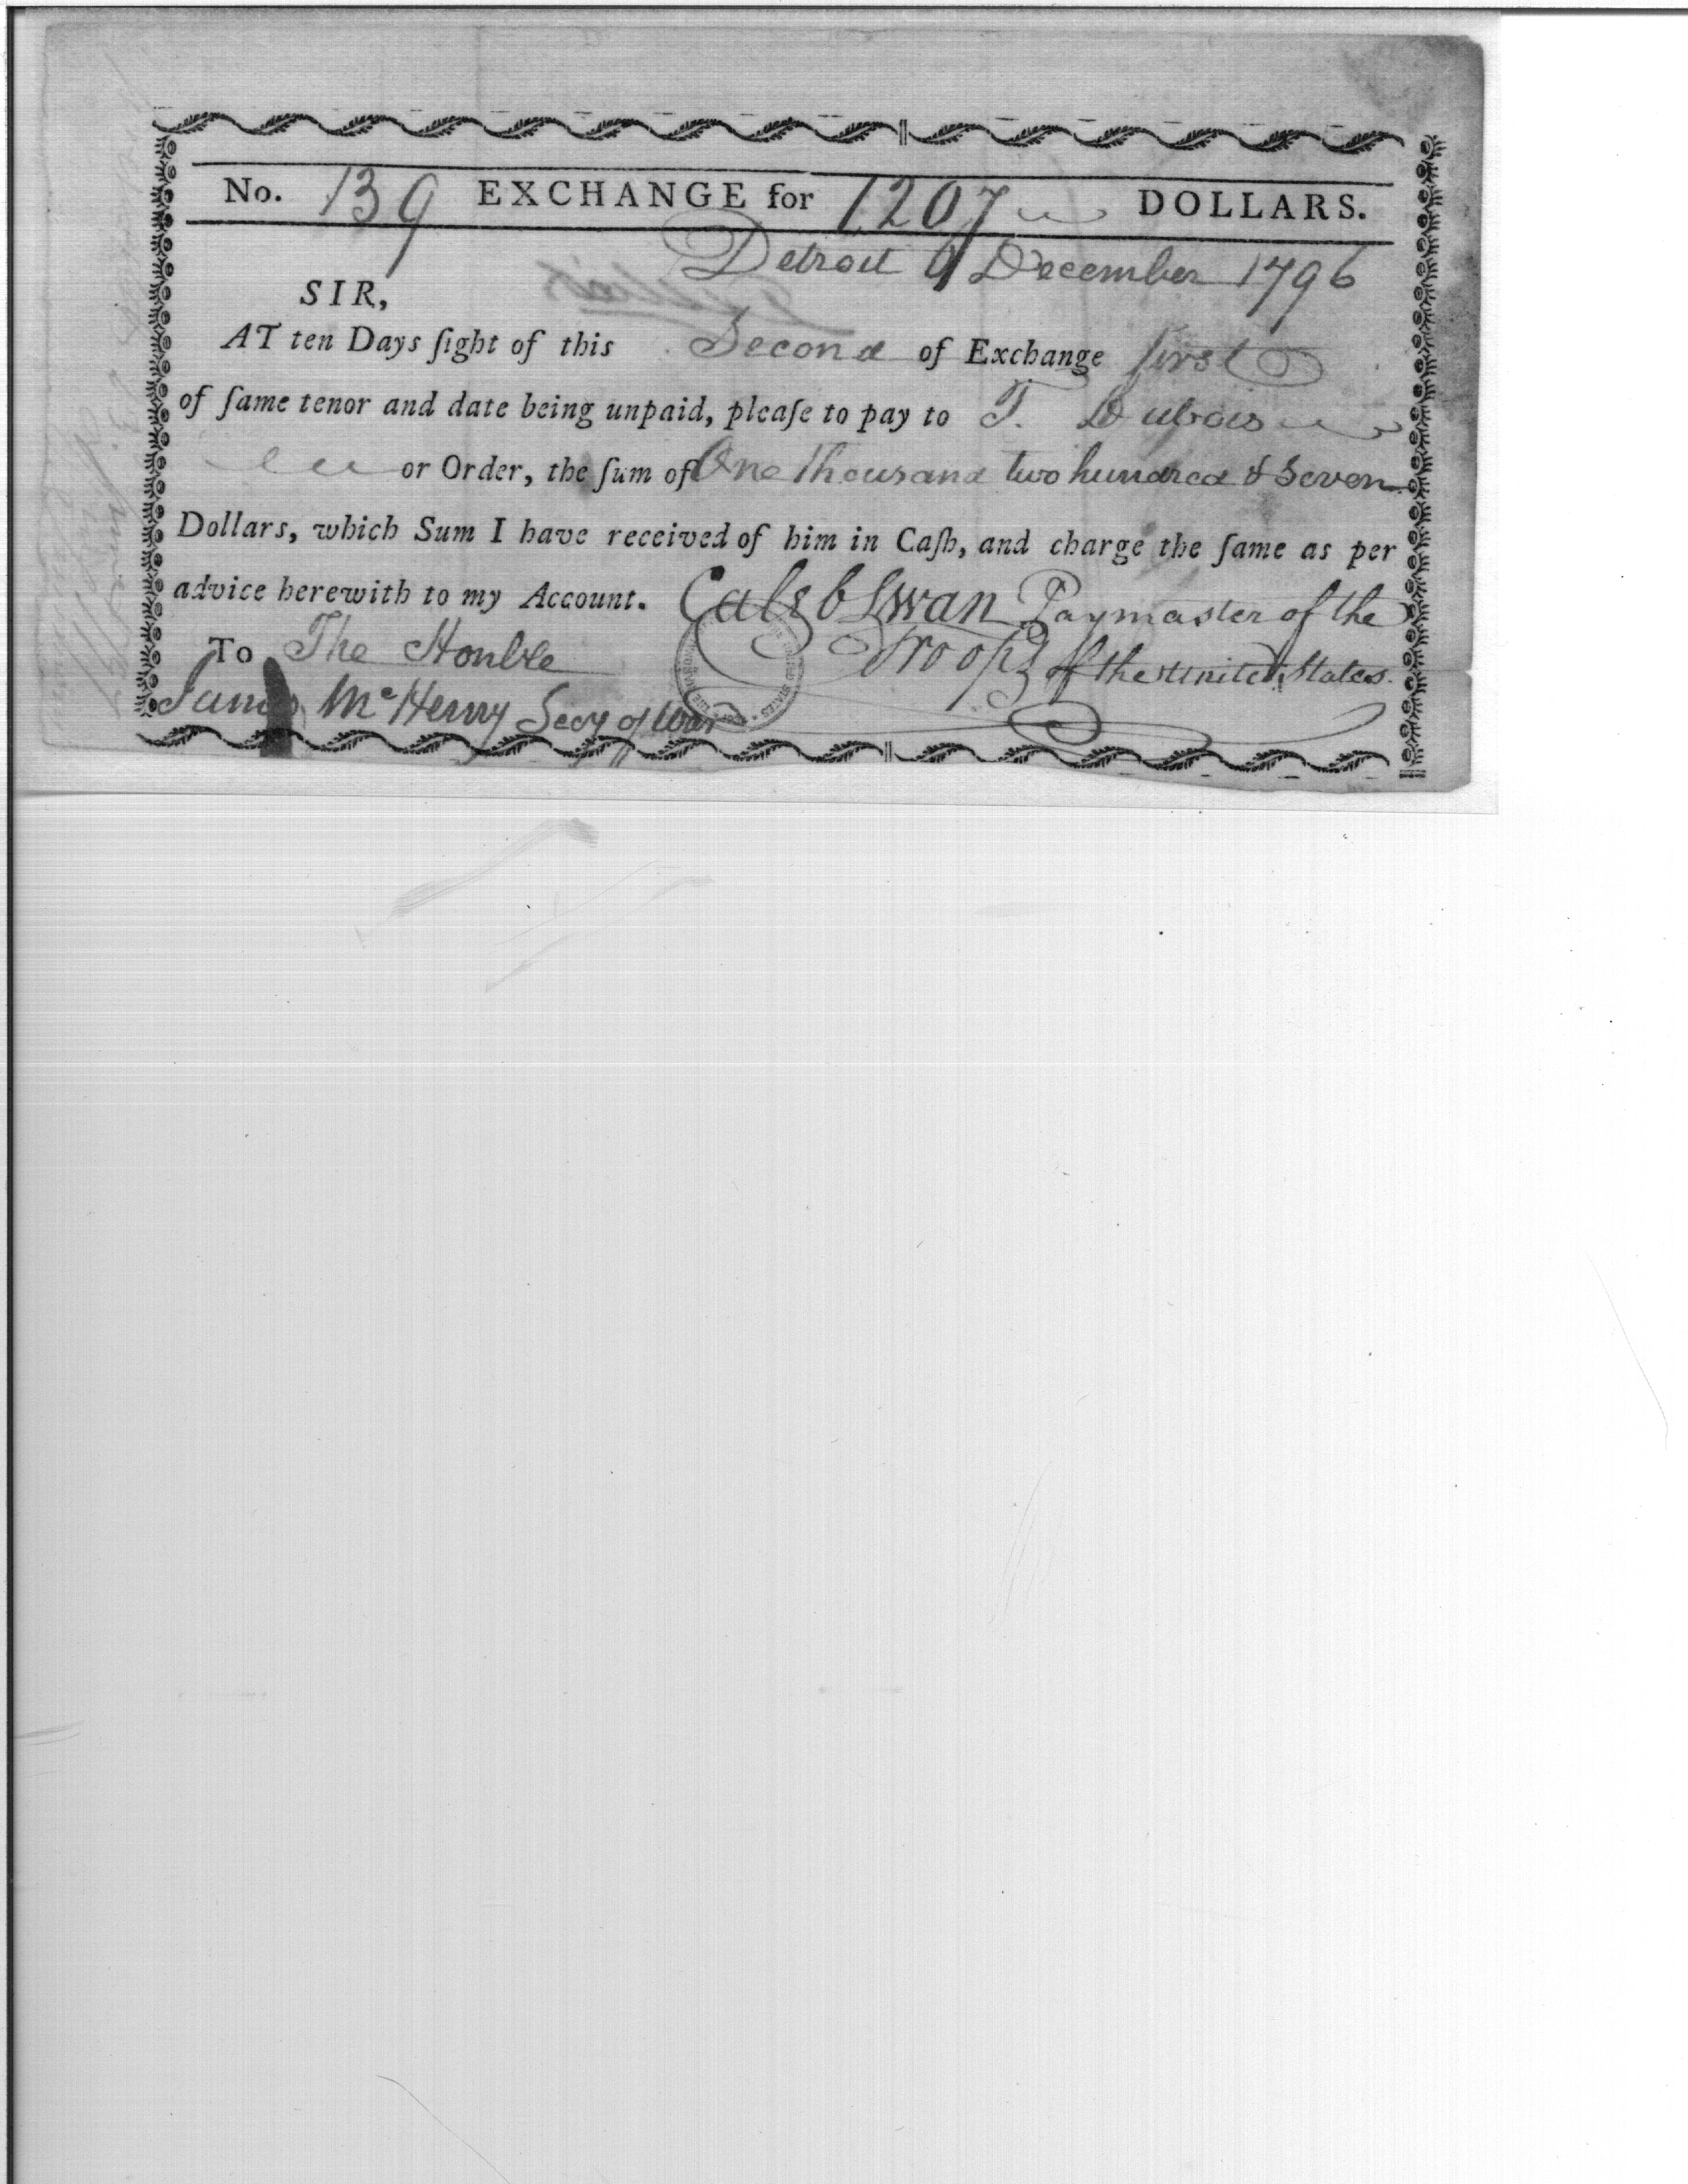 No. 139 EXCHANGE for 1207 DOLLARS.
Detroit 6 December 1796
SIR,
AT ten Days ſight of this Second of Exchange first
of ſame tenor and date being unpaid, pleaſe to pay to T. Dubois
or Order, the ſum of One Thousand two hundred & Seven
Dollars, which Sum I have received of him in Caſh, and charge the ſame as per
advice herewith to my Account. Caleb Swan Paymaster of the
Troops of the United States.
To The Honble
James McHenry Secy of War